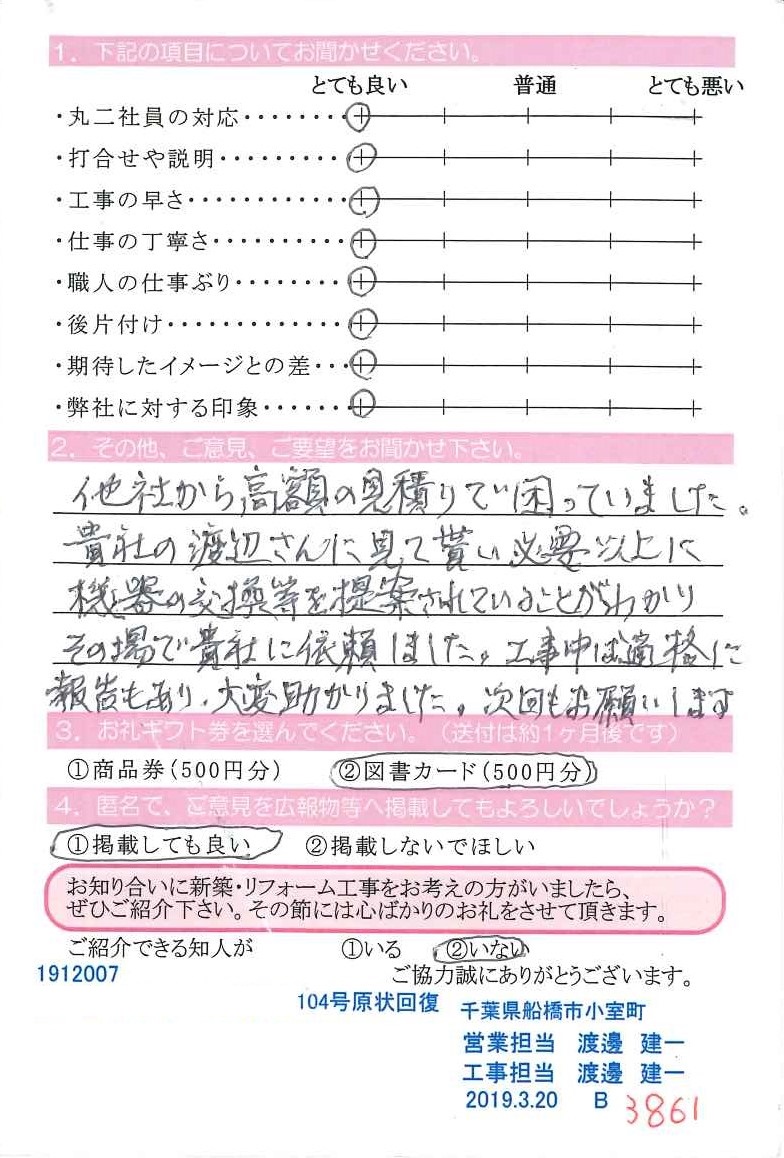 1. 下記の項目についてお聞かせください。
とても良い 普通 とても悪い
・丸二社員の対応・・・・・・・・
・打合せや説明・・・・・・・・・
・工事の早さ・・・・・・・・・・・・
・仕事の丁寧さ・・・・・・・・・・
・職人の仕事ぶり・・・・・・・・
・後片付け・・・・・・・・・・・・・
・期待したイメージとの差・・・
・弊社に対する印象・・・・・・
2. その他、ご意見、ご要望をお聞かせ下さい。
他社から高額の見積りで困っていました。
貴社の渡辺さんに見て貰い必要以上に
機器の交換等を提案されていることがわかり
その場で貴社に依頼しました。工事中は適格に
報告もあり、大変助かりました。次回もお願いします
3. お礼ギフト券を選んでください。（送付は約1ヶ月後です）
①商品券(500円分) ②図書カード(500円分)
4. 匿名で、ご意見を広報物等へ掲載してもよろしいでしょうか？
①掲載しても良い ②掲載しないでほしい
お知り合いに新築・リフォーム工事をお考えの方がいましたら、
ぜひご紹介下さい。その節には心ばかりのお礼をさせて頂きます。
ご紹介できる知人が ①いる ②いない
1912007 ご協力誠にありがとうございます。
104号原状回復 千葉県船橋市小室町
営業担当 渡邊 建一
工事担当 渡邊 建一
2019.3.20 B 3861